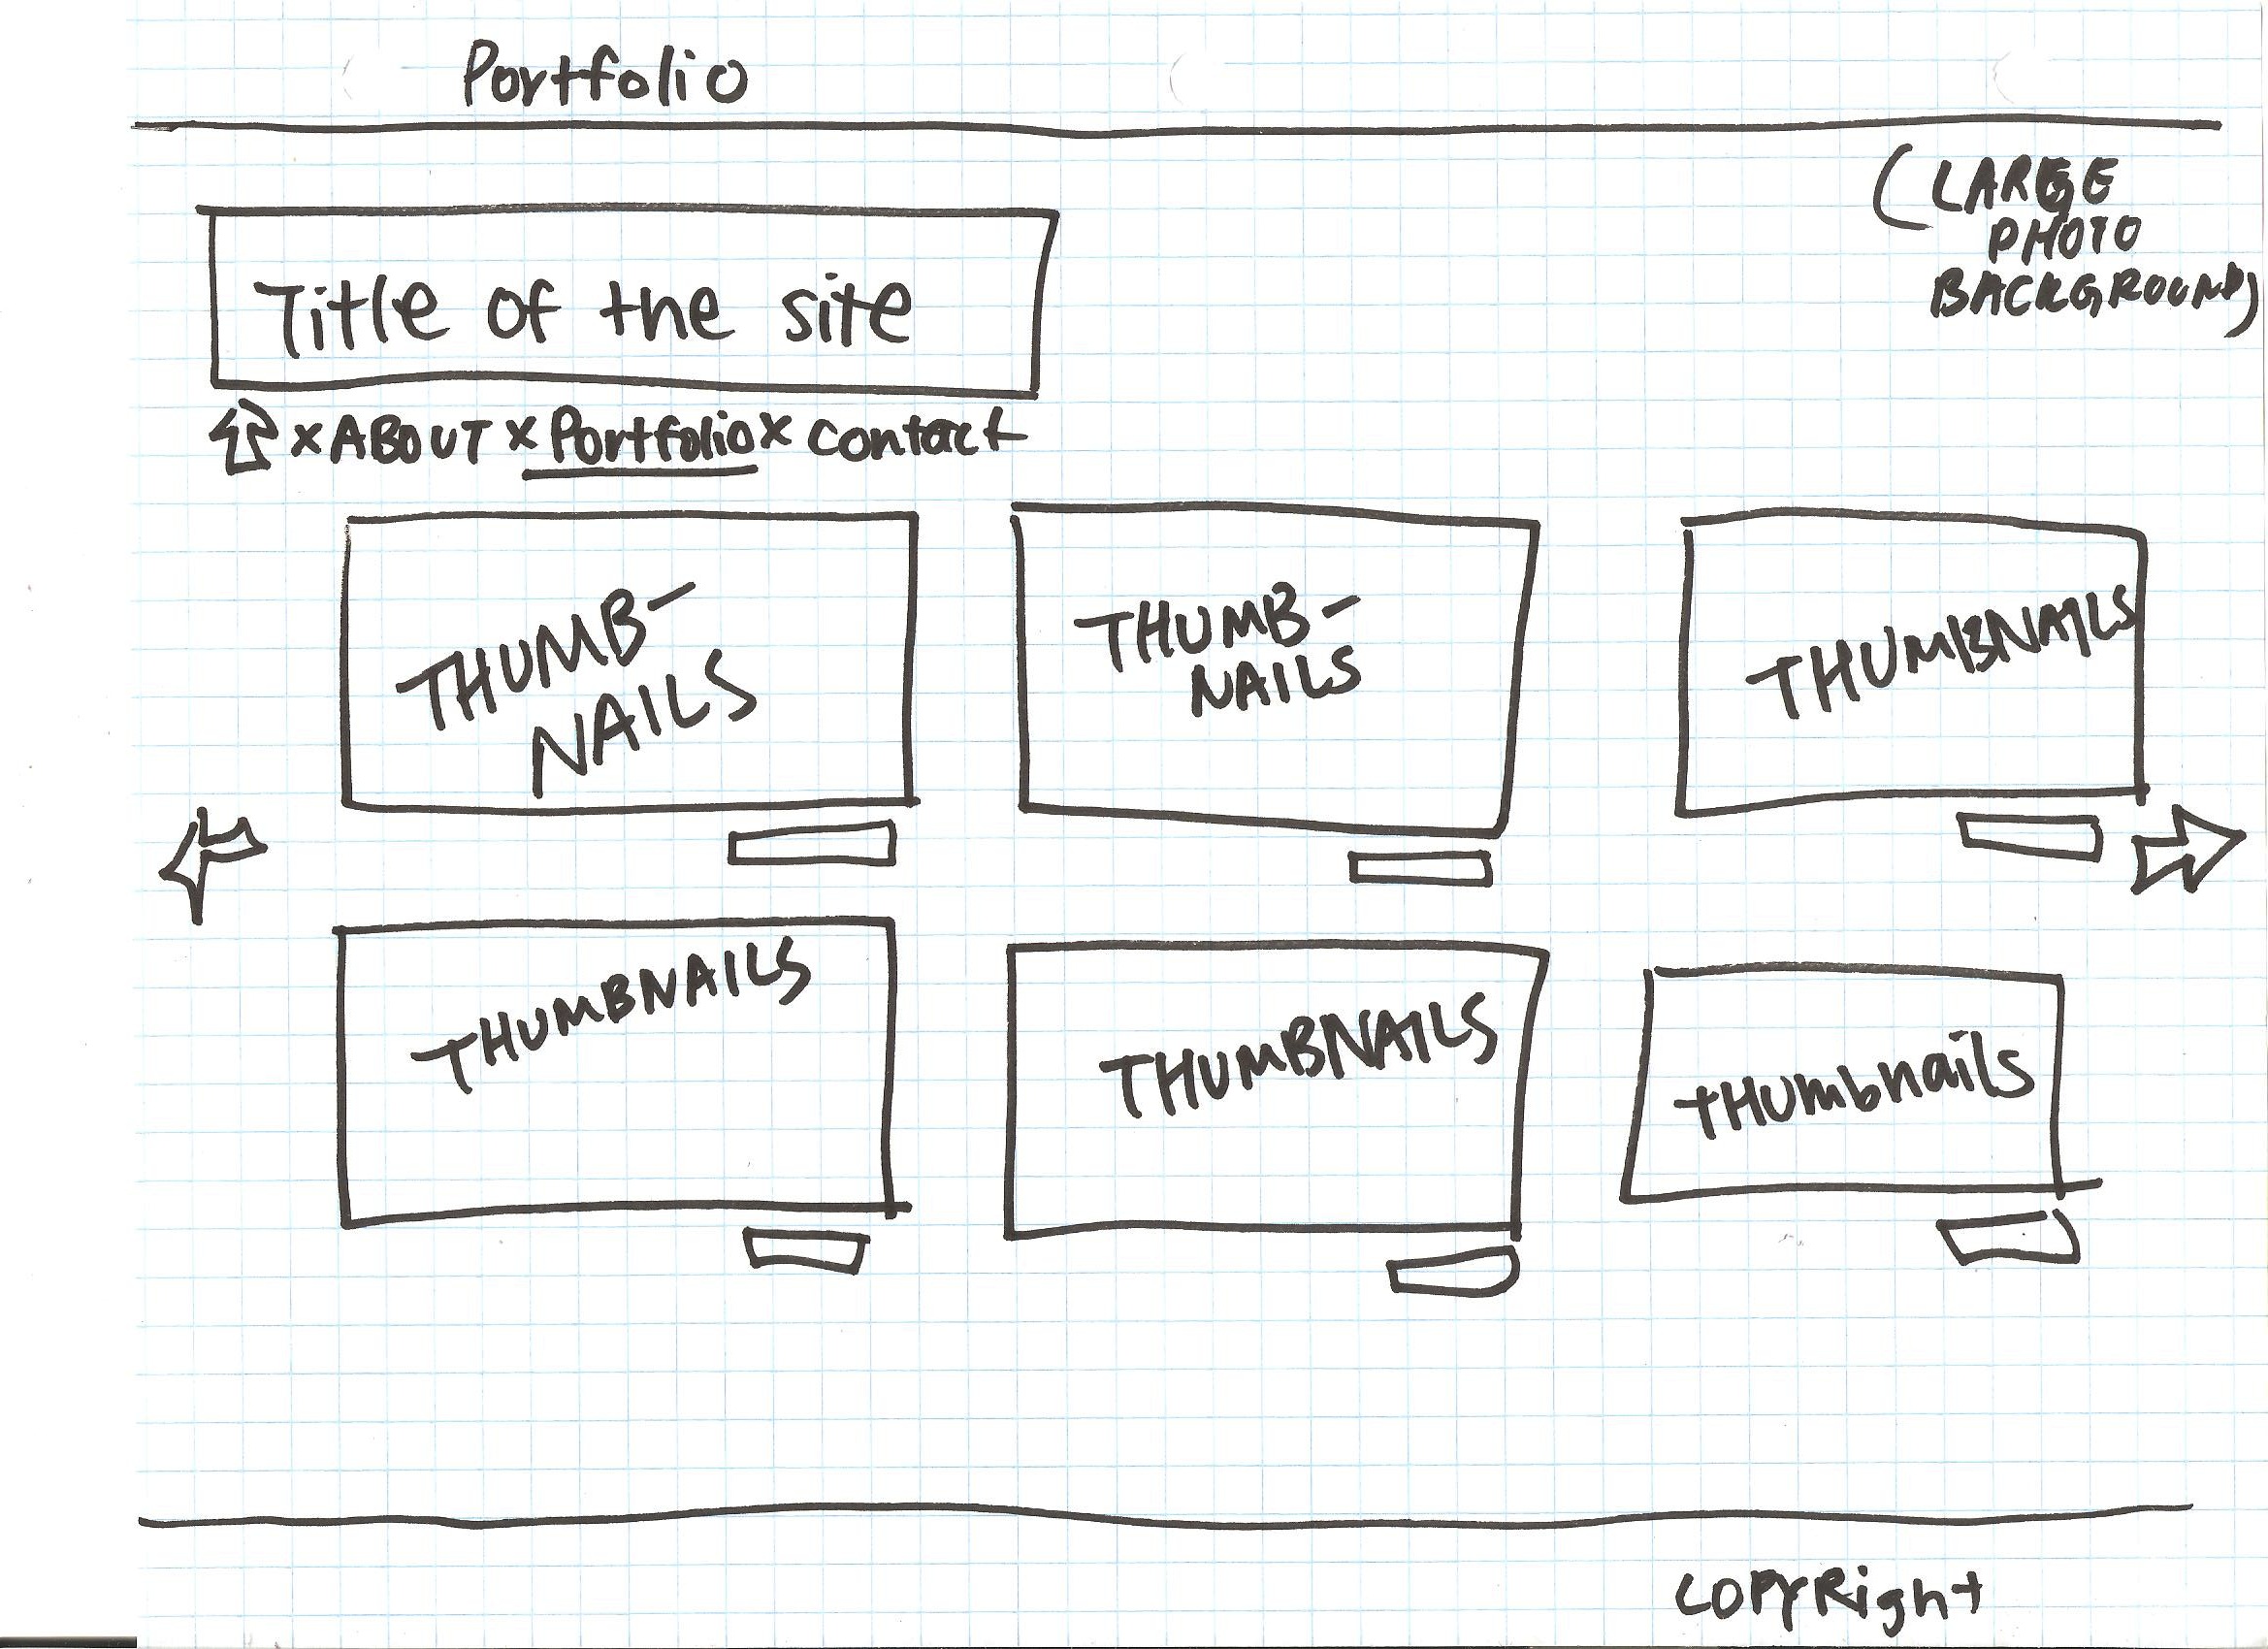 Portfolio
(LARGE
PHOTO
BACKGROUND)
Title of the site
x ABOUT x Portfolio x contact
THUMB-
NAILS
THUMB-
NAILS
THUMBNAILS
THUMBNAILS
THUMBNAILS
THUMbnails
COPYRight